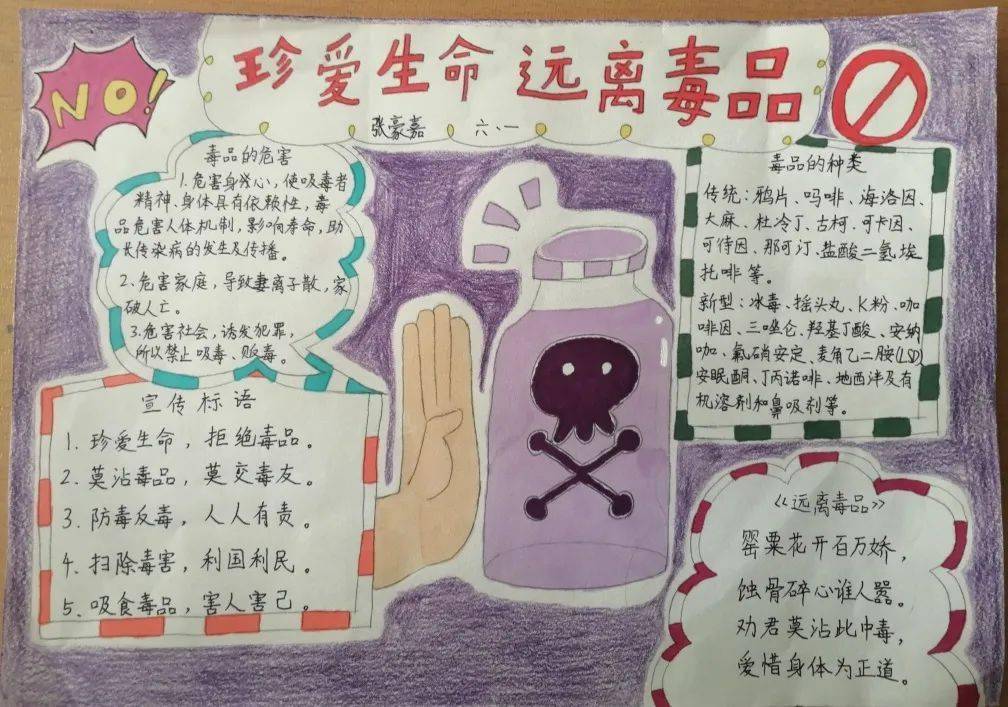 NO!
珍爱生命 远离毒品
张豪嘉 六、一
毒品的危害
1.危害身心,使吸毒者
精神、身体具有依赖性,毒
品危害人体机制,影响寿命,助
长传染病的发生及传播。
2.危害家庭,导致妻离子散,家
破人亡。
3.危害社会,诱发犯罪,
所以禁止吸毒、贩毒。
宣传标语
1.珍爱生命,拒绝毒品。
2.莫沾毒品,莫交毒友。
3.防毒反毒,人人有责。
4.扫除毒害,利国利民。
5.吸食毒品,害人害己。
毒品的种类
传统:鸦片、吗啡、海洛因、
大麻、杜冷丁、古柯、可卡因、
可待因、那可汀、盐酸二氢埃
托啡等。
新型:冰毒、摇头丸、K粉、咖
啡因、三唑仑、羟基丁酸、安纳
咖、氟硝安定、麦角乙二胺(LSD)
安眠酮、丁丙诺啡、地西泮及有
机溶剂和鼻吸剂等。
《远离毒品》
罂粟花开百万娇,
蚀骨碎心谁人嚣。
劝君莫沾此中毒,
爱惜身体为正道。